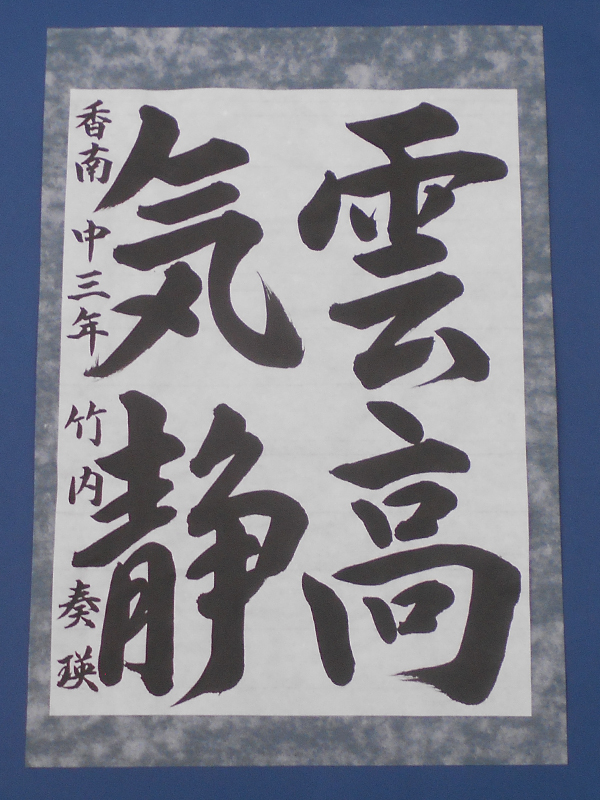 雲高
気静
香南 中三年 竹内 奏瑛